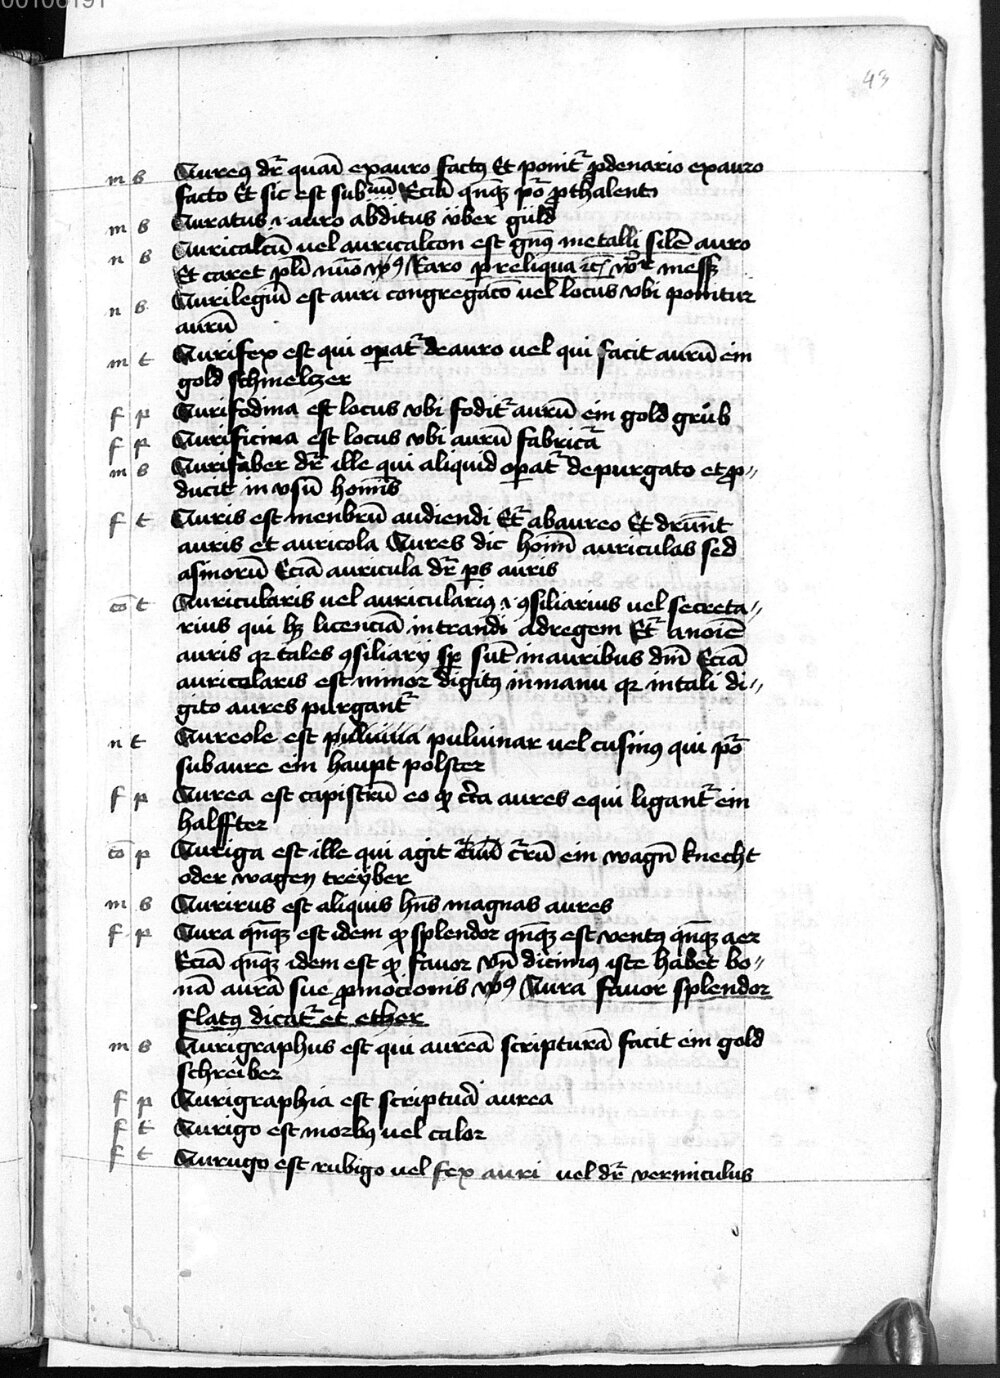 00106191
43
m s Aureꝰ dr̄ quasi ex auro factꝰ Et ponit᷑ ꝓ denario ex auro
facto Et sic est sub̄m Eciā qn̄qꝫ pō ꝓ thalento
m s Auratus .i. auro abditus v̈ber güld
n s Auricalcū uel auricalcon est gn̄ꝰ metalli silē auro
Et caret plī nūo vꝰ Raro reliqua
n s Aurilegiū est auri congregacō uel locus vbi ponitur
aurū
m t Aurifex est qui opat᷑ de auro uel qui facit aurū ein
gold schmelczer
f p Aurifodina est locus vbi fodit᷑ aurū ein gold grůb
f p Aurificina est locus vbi aurū fabricat᷑
m s Aurifaber dr̄ ille qui aliquid opat᷑ de purgato et ꝓ//
ducit in vsū homīs
f t Auris est menbrū audiendi Et᷑ ab aureo Et dr̄unt
auris et auricola Aures dic homī auriculas sed
asinorū Eciā auricula dr̄ ps auris
cō t Auricularis uel auriculariꝰ .i. ꝯsiliarius uel secreta//
rius qui hꝫ licenciā intrandi ad regem Et᷑ a noīe
auris qꝛ tales ꝯsiliarij sp̄ sūt in auribus dn̄i Eciā
auricolaris est minor digitꝰ in manu qꝛ in tali di//
gito aures purgant᷑
n t Aureole est puluinar uel cusinꝰ qui pō
sub aure ein haupt polster
f p Aurea est capistrū eo ꝙ circa aures equi ligant᷑ ein
halffter
cō p Auriga est ille qui agit currū ein wagn̄ knecht
oder wagen treÿber
m s Aurirus est aliquis hn̄s magnas aures
f p Aura qn̄qꝫ est idem ꝙ splendor qn̄qꝫ est ventꝰ qn̄qꝫ aer
Eciā qn̄qꝫ idem est ꝙ fauor vn̄ dicimꝰ iste habet bo//
nā aurā sue ꝓmocionis vꝰ Aura fauor splendor
flatꝰ dicat᷑ et ether
m s Aurigraphus est qui aureā scripturā facit ein gold
schreiber
f p Aurigraphia est scriptura aurea
f t Aurigo est morbꝰ uel calor
f t Aurugo est rubigo uel fex auri uel dr̄ vermiculus